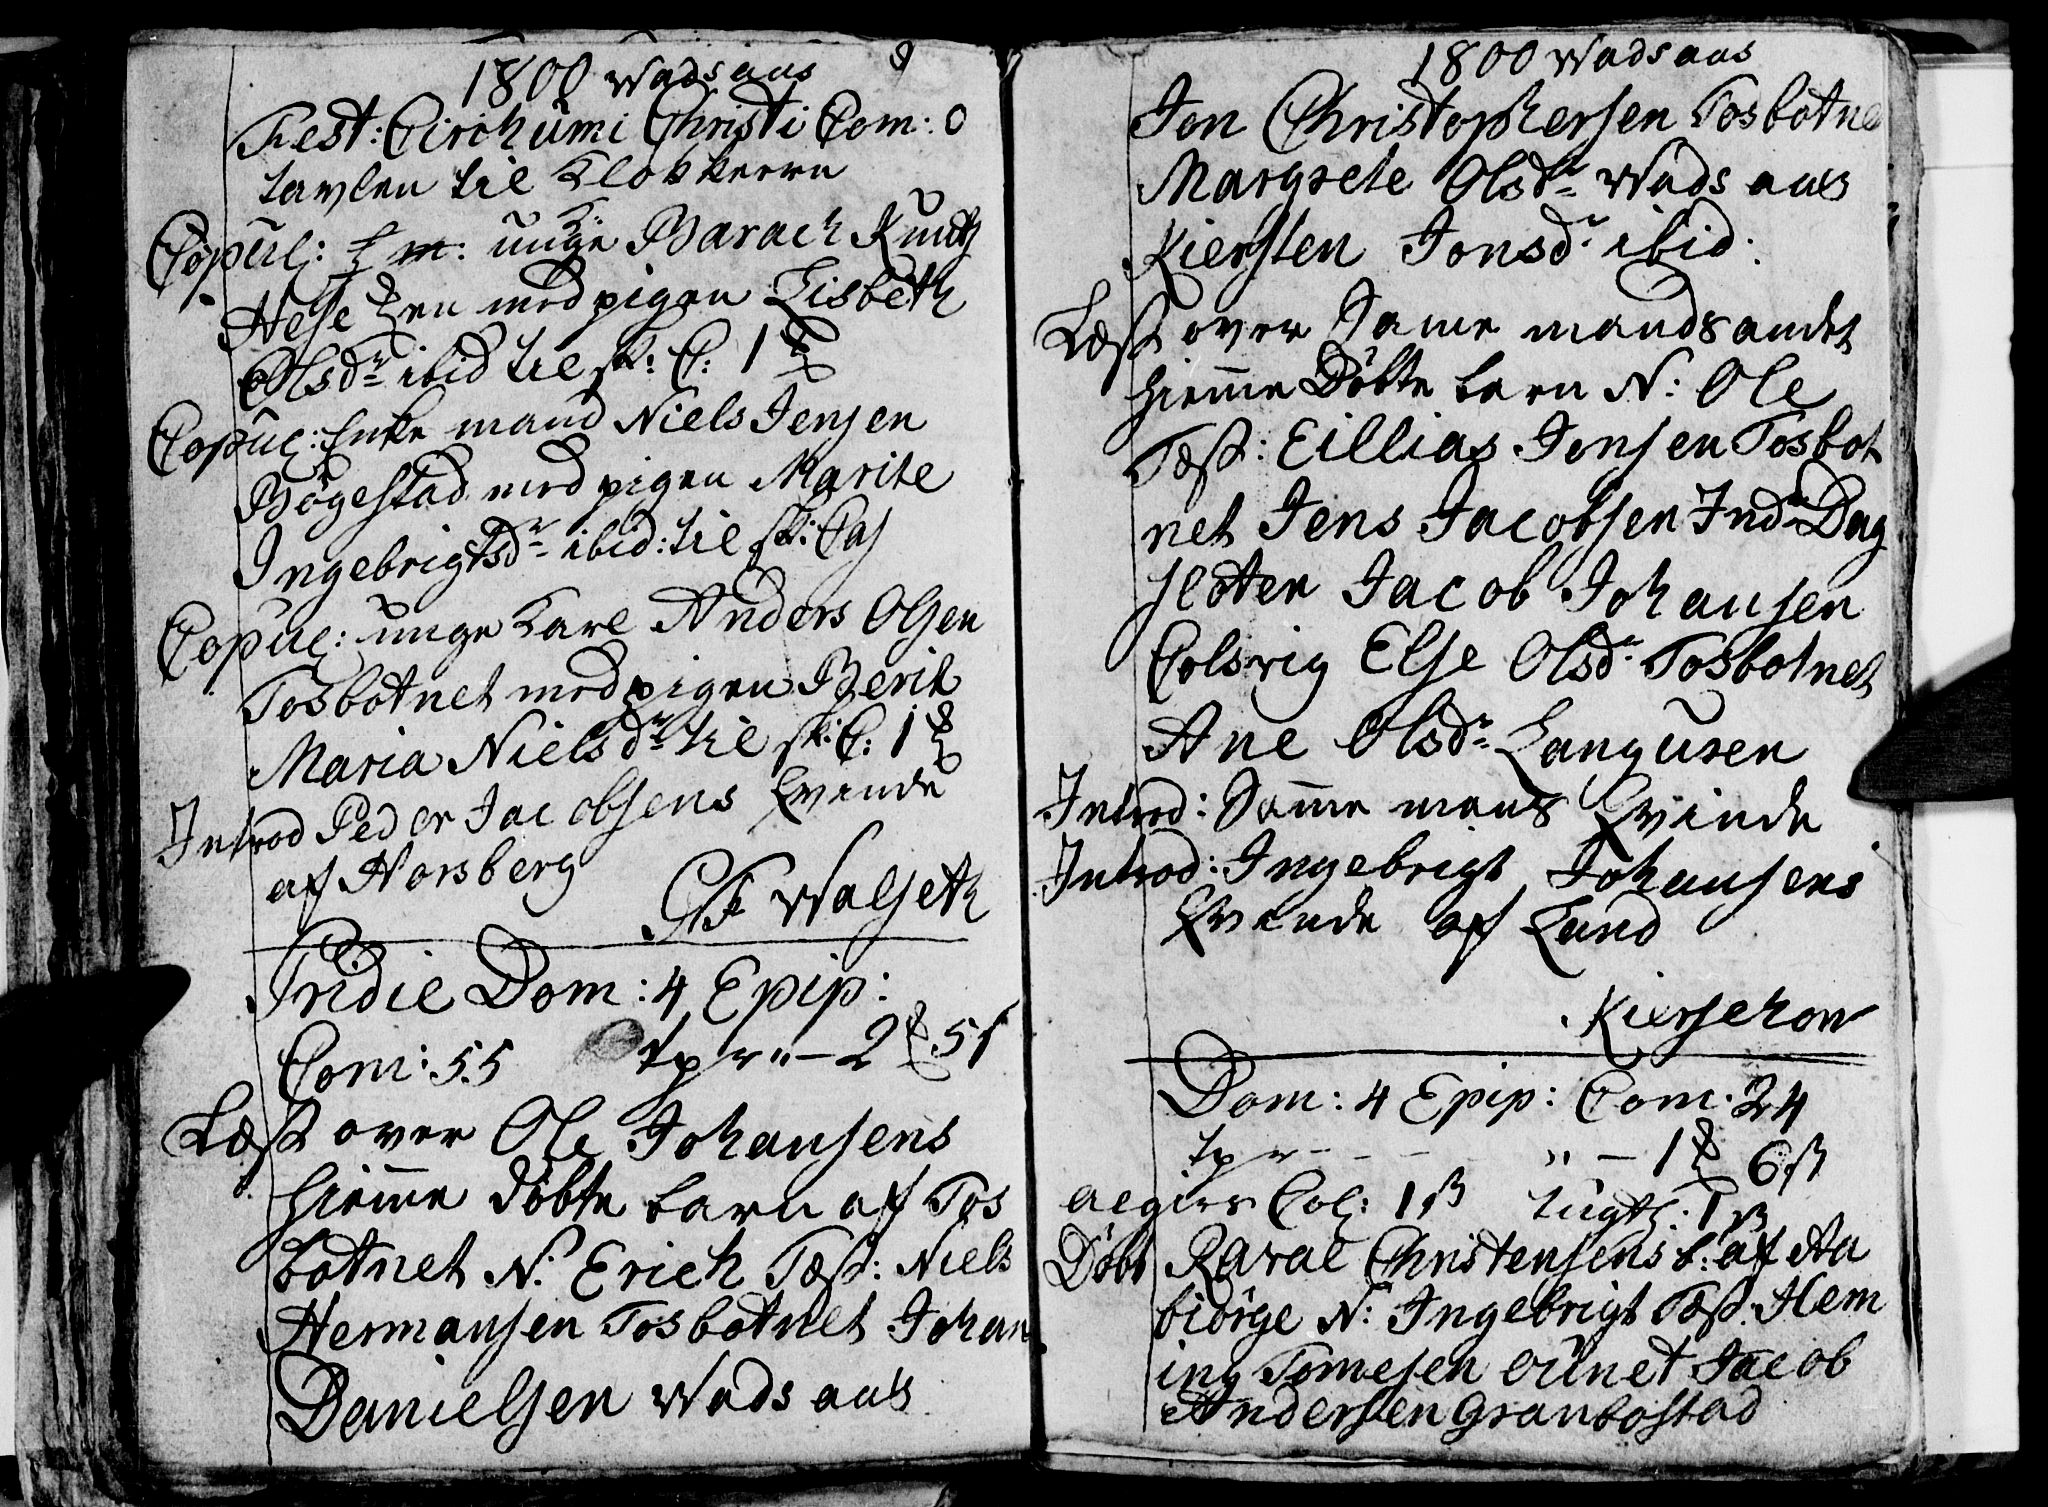 1800 Wadsaas
Fest: Circhumi Christi Com: 0
tavlen til Klokkeren
Copul: unge Barach Knutz
Hesezen med pigen Lisbeth
Olsdr ibid til sk: C: 1
Copul: Enke mand Niels Jensen
Bøgestad med pigen Marite
Ingebrigtsdr ibid: til sk: Cas
Copul: unge Karl Anders Olsen
Tosbotnet med pigen Berit
Maria Nielsdr til sk: C: 1
Introd Peder Jacobsens Kvinde
af Horsberg
Walseth
Pridie Dom: 4 Epip:
Com: 55 tpr" – 2 51
Læst over Ole Johansens
hieme døbte barn af Tos
botnet N: Erich Test: Niels
Hermansen Tosbotnet Johan
Danielsen Wadsaas
1800 Wadsaas
Jon Christophersen Tosbotne
Margrete Olsdr Wadsaas
Kiersten Jonsdr ibid:
Læst over Same mands andet
hieme Døbte barn N: Ole
Test: Eillias Jensen Tosbot
net Jens Jacobsen Indr Dag
sloten Jacob Johansen
Colsvig Else Olsdr Tosbotnet
Ane Olsdr Langusen
Introd: Same mans Kvinde
Introd: Ingebrigt Johansens
Kvinde af Lund
Kierschow
Dom: 4 Epip: Com. 24
tpr - - - " – 1 6 ß
Col: 1 ß tugth: 1 ß
Døbt Raval Christensens b: af Aa
biørge N: Ingebrigt Test: Hem
ing Tomesen Ounet Jacob
Andersen Granbostad